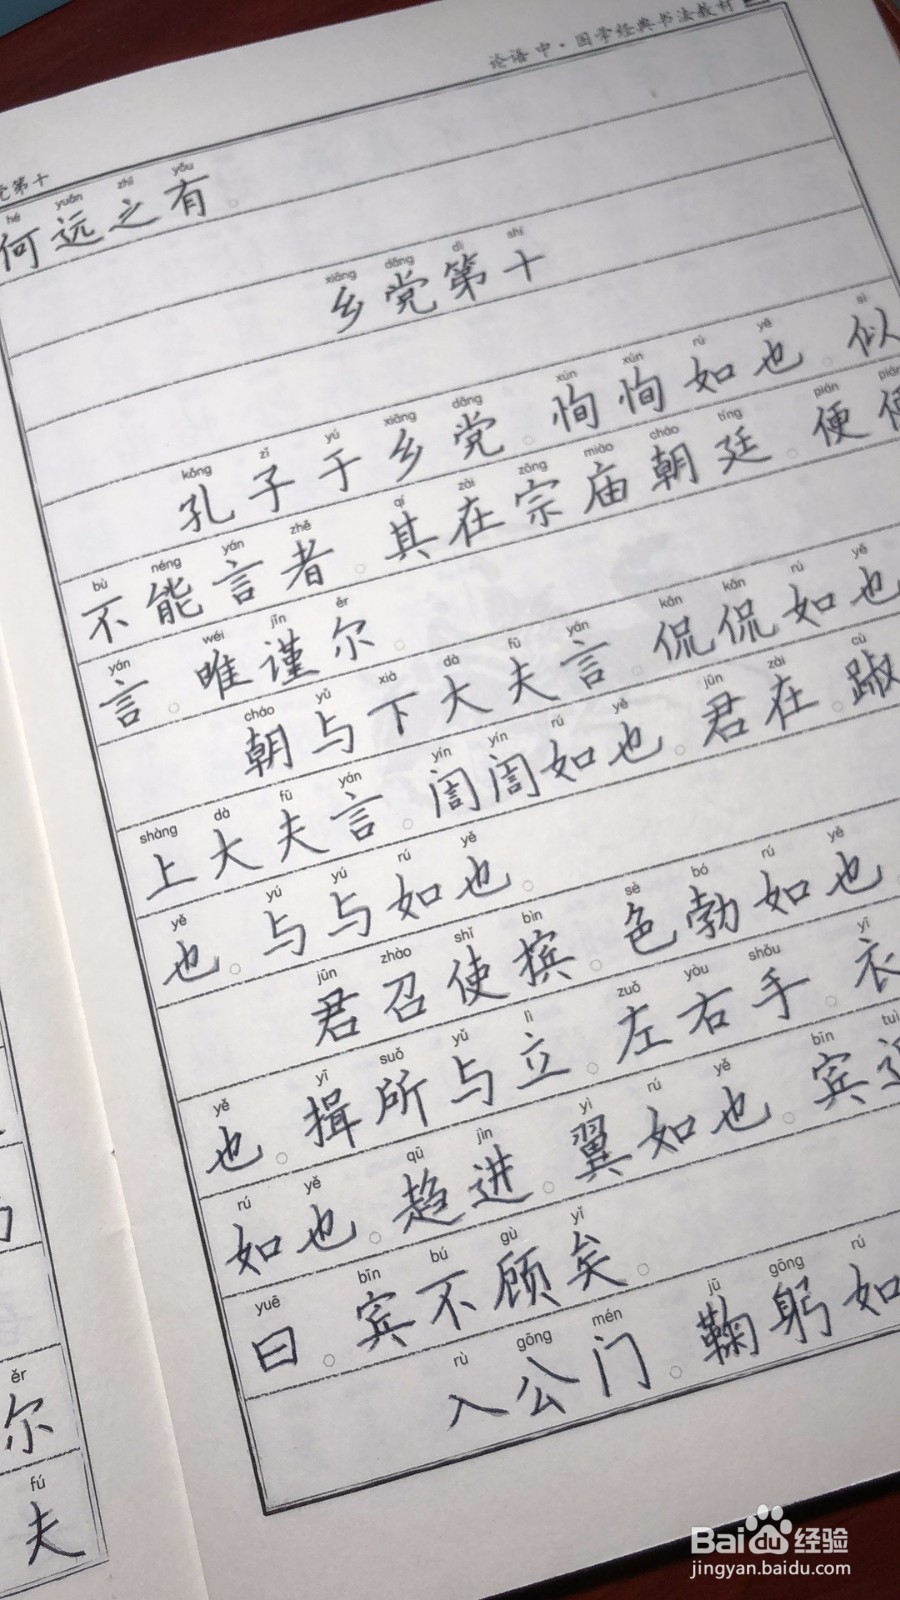 论语 中·国学经典书法教材
党第十
hé yuǎn zhī yǒu
何远之有。
xiāng dǎng dì shí
乡党第十
kǒng zǐ yú xiāng dǎng xún xún rú yě sì
孔子于乡党。恂恂如也。似
bù néng yán zhě qí zài zōng miào cháo tíng pián pián
不能言者。其在宗庙朝廷。便便
yán wéi jǐn ěr
言。唯谨尔。
cháo yǔ xià dà fū yán kǎn kǎn rú yě
朝与下大夫言。侃侃如也
shàng dà fū yán yín yín rú yě jūn zài cù
上大夫言。訚訚如也。君在。踧
yě yú yú rú yě
也。与与如也。
jūn zhào shǐ bìn sè bó rú yě
君召使摈。色勃如也
yě yī suǒ yǔ lì zuǒ yòu shǒu yī
也。揖所与立。左右手。衣
rú yě qū jìn yì rú yě bīn tuì
如也。趋进。翼如也。宾退
yuē bīn bú gù yǐ
曰。宾不顾矣。
rù gōng mén jū gōng rú
入公门。鞠躬如
ěr
尔
fú
夫
Baidu经验
jingyan.baidu.com